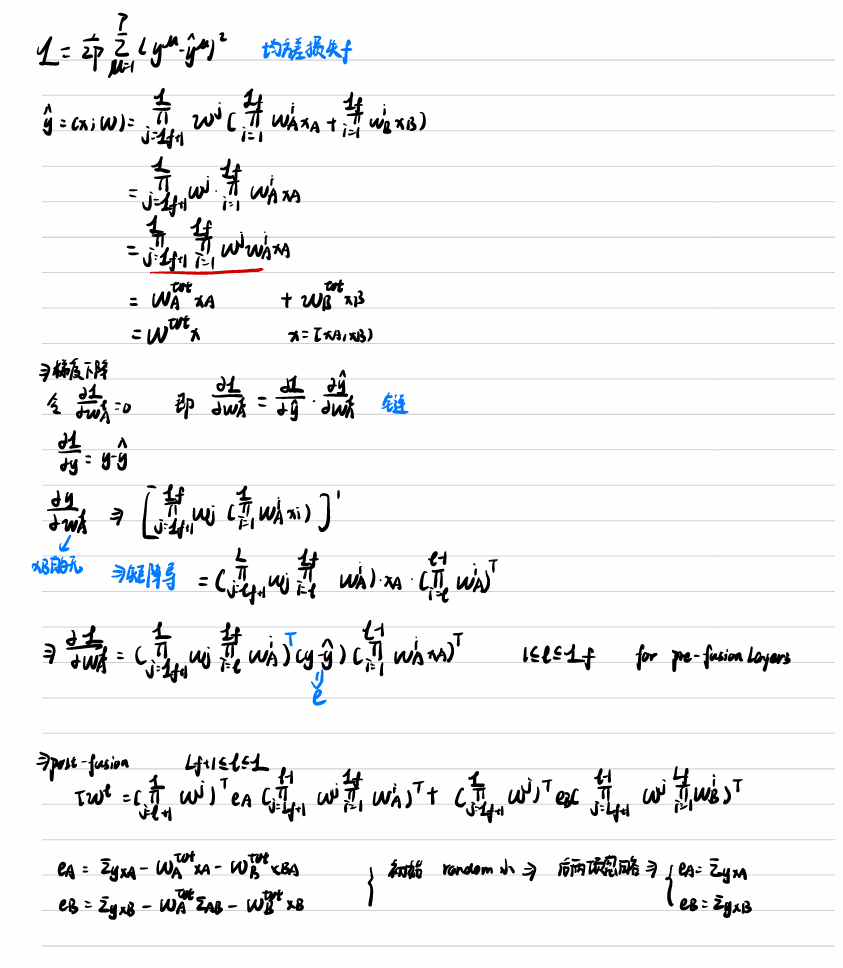 L = 1/2P Σ_{μ=1}^{P} (y^μ - ŷ^μ)² 均方差损失f
ŷ = (x; W) = ∏_{j=Lf+1}^{L} W^j (∏_{i=1}^{Lf} W_A^i x_A + ∏_{i=1}^{Lf} W_B^i x_B)
= ∏_{j=Lf+1}^{L} W^j · ∏_{i=1}^{Lf} W_A^i x_A
= ∏_{j=Lf+1}^{L} ∏_{i=1}^{Lf} W^j W_A^i x_A
= W_A^{tot} x_A + W_B^{tot} x_B
= W^{tot} x x = [x_A, x_B)
⇒ 梯度下降
令 ∂L/∂W_A^l = 0 即 ∂L/∂W_A^l = ∂L/∂ŷ · ∂ŷ/∂W_A^l 链
∂L/∂y = y - ŷ
∂y/∂W_A^l ⇒ [∏_{j=Lf+1}^{Lf} W_j (∏_{i=1}^{L} W_A^i x_i)]'
x_B 无
⇒ 矩阵导 = (∏_{j=Lf+1}^{L} W_j ∏_{i=l}^{Lf} W_A^i) · x_A · (∏_{i=l}^{l-1} W_A^i)^T
⇒ ∂L/∂W_A^l = (∏_{j=Lf+1}^{L} W_j ∏_{i=l}^{Lf} W_A^i)^T (y - ŷ) (∏_{i=1}^{l-1} W_A^i x_A)^T 1 ≤ l ≤ Lf for pre-fusion layers
e
⇒ post-fusion Lf+1 ≤ l ≤ L
τW^l = (∏_{j=l+1}^{L} W^j)^T e_A (∏_{j=Lf+1}^{l-1} W^j ∏_{i=1}^{Lf} W_A^i)^T + (∏_{j=Lf+1}^{L} W^j)^T e_B (∏_{j=Lf+1}^{l-1} W^j ∏_{i=1}^{Lf} W_B^i)^T
e_A = Σ_{yxA} - W_A^{tot} x_A - W_B^{tot} x_{BA} 初始 random 小 ⇒ 后两项忽略 ⇒ { e_A = Σ_{yxA}
e_B = Σ_{yxB} - W_A^{tot} Σ_{AB} - W_B^{tot} x_B e_B = Σ_{yxB}